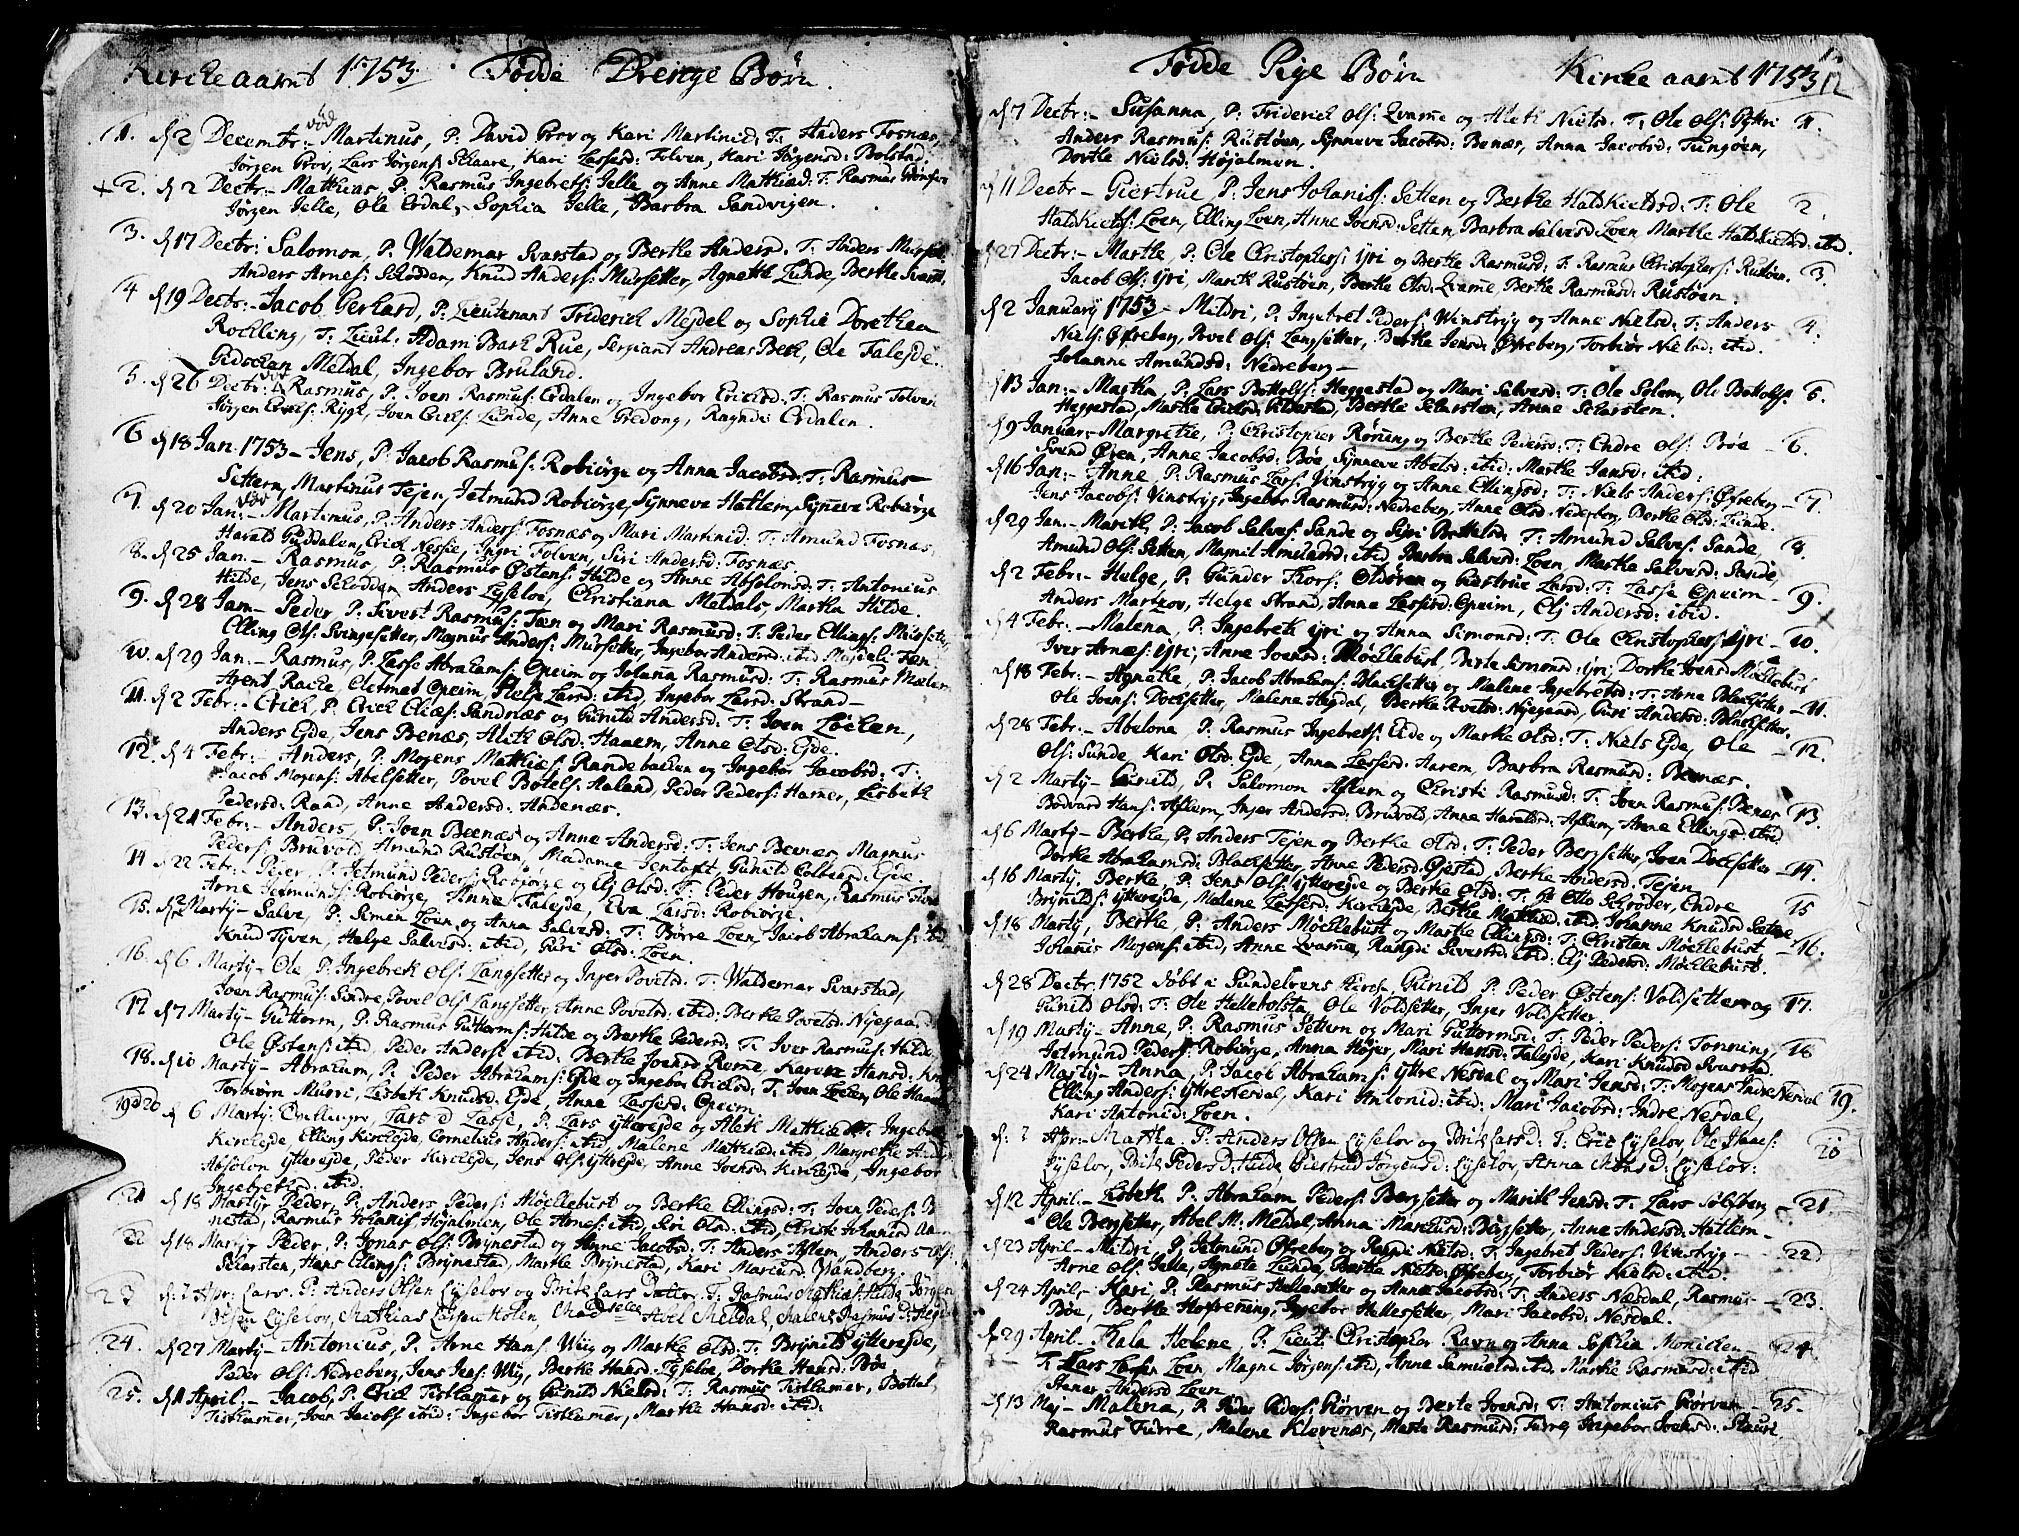 Kirke aarnt 1753. Fødde Drenge Børn.
1. d 2 Decembr:- Martinus, P: David Grov og Kari Martinid: T: Anders Fosnæs,
død
Jørgen Grov, Lars Jørgens: Skaare, Kari Lassesd: Folven, Kari Jørgensd: Bolstad.
+ 2. d 2 Decbr:- Mathias, P: Rasmus Ingebrets: Jelle og Anne Mathiæd: T: Rasmus
Jørgen Jelle, Ole Erdal, Sophia Jelle, Barbra Sandvigen.
3. d 17 Decbr: Salomon, P: Waldemar Svarstad og Berthe Andersd: T: Anders
Anders Arnes: Skodden, Knud Anders: Mursetter, Agnethe Lunde, Berthe
4 d 19 Decbr:- Jacob Gerhard, P: Lieutenant Friderich Mejdel og Sophie Dorethea
Rochling, T: Lieut: Adam Bark Rue, Sergiant Andreas Beck, Ole Falejde
Meldal, Ingebor Bruland.
5. d 26 Decbr: Rasmus, P: Joen Rasmus: Erdalen og Ingebor Ericksd: T: Rasmus Folven
død
Jørgen Joen Ericks: Lunde, Anne Gredong, Ragndi Erdalen.
6 d 18 Jan. 1753 - Jens, P: Jacob Rasmus: Robiørge og Anna Jacobsd: T: Rasmus
Settern, Martinus Tejen, Jetmund Robiørge, Synneve Hatlem, Synneve Robiørge
7. d 20 Jan:- Martinus, P: Anders Anders: Fosnæs og Mari Martinid: T: Amund Fosnæs,
død
Harald Guddalen, Erick Nesse, Ingri Folven, Siri Andersd: Fosnæs.
8. d 25 Jan - Rasmus, P: Rasmus Østens: Hilde og Anne Absolonsd: T: Antonius
Hilde, Jens Skodden, Anders Lyseloe, Christiana Meldals, Martha Hilde.
9. d 28 Jan - Peder, P: Sivert Rasmus: Fæn og Mari Rasmusd: T: Peder Ellings:
Elling Ols: Svingesetter, Magnus Anders: Mursetter, Ingebor Andersd: ibid
10. d 29 Jan:- Rasmus, P: Lasse Abrahams: Opeim og Johanna Rasmusd: T: Rasmus
Arent Racke, Clermet Opeim, Helge Larsd: ibid, Ingebor Larsd: Strand -
11. d 2 Febr:- Erick, P: Erick Elias: Sandnæs og Gunild Andersd: T: Joen Løcken,
Anders Ejde, Jens Benæs, Aleth Olsd: Haaem, Anne Olsd: Ejde.
12. d 4 Febr:- Anders, P: Mogens Mathias: Randebacken og Ingebor Jacobsd: T:
Jacob Mogens: Abelsetter, Povel Botels: Aaland, Peder Peders: Hamer, Lisbeth
Pedersd: Rand, Anne Andersd: Andenæs.
13. d 21 Febr:- Anders, P: Joen Beenæs og Anne Andersd: T: Jens Beenæs, Magnus
Peders: Bruvold, Amund Rustøen, Madame Jentoft Gunild Colbiørnsd: Ejde.
14 d 22 Febr:- Pejer, P: Jetmund Peders: Robiørge og Elj Olsd: T: Peder Hougen, Rasmus
Arne Jetmunds: Robiørge, Anne Falejde, Eva Larsd: Robiørge.
15. Martij - Salve, P: Simen Loen og Anna Salvesd: T: Børre Loen, Jacob Abrahams: ibid
Knud Tyven, Helge Salvesd: ibid, Guri Olsd: Loen.
16. d 6 Martij - Ole, P: Ingebreth Ols: Langsetter og Inger Povelsd: T: Waldemar Svarstad,
Joen Rasmus: Sindre, Povel Ols: Langsetter, Anne Povelsd: ibid: Berthe Povelsd: Nyegaa
17 d 7 Martij - Guttorm, P: Rasmus Guttorms: Hilde og Berthe Pedersd: T: Iver Rasmus: Hilde
Ole Østens: ibid, Peder Anders: ibid: Berthe Joensd: Karen Hansd:
18. d 10 Martij - Abraham, P: Peder Abrahams: Ejde og Ingebor Ericksd: T: Joen Loelen, Ole
Torbiørn Muri, Lisbeth Knudsd: Ejde, Anne Lassesd: Opeim.
19 & 20 d 6 Martij: Lars & Lasse, P: Lars ytterejde og Aleth Mathiæd: T: Ingebreth
Kirckejde, Elling Kirckejde, Cornelius Anders: ibid, Malene Mathiæd: ibid, Margrethe
Absolon ytterejde, Peder Kirckejde, Jens Ols: ytterejde, Anne Joensd: Kirckejde, Ingebor
Ingebrethsd: ibid.
21 d 18 Martij Peder, P: Anders Peders: Møcklebust og Berthe Ellingsd: T: Joen Peders:
nestad, Rasmus Johanis: Højalmen, Ole Arnes: ibid, Siri Olsd: ibid, Christi Johanisd
22 d 18 Martij - Peder, P: Jonas Ols: Brynestad og Anne Jacobsd: T: Anders Aflem, Anders Ols:
Skarsten, Hans Ellings: Brynestad, Marthe Brynestad, Kari Mariusd: Vandberg.
23 d: 7 Apr: Lars. P: Anders Olsen Lyselov og Brite Lars Datter. T: Rasmus Mathias: Hilde, Jørgen
Lyselov, Mathias Larsen Holen, Abel Meldal, Malene Rasmus D:
24. d 27 Martij - Antonius, P: Arne Hans: Wiig og Marthe Olsd: T: Brynild ytterejde,
Peder Ols: Nedreberg, Jens Jens: Wiig, Berthe Hansd: Lyseloe, Dorthe Hansd: Bøe
25. d 11 April:- Jacob, P: Erick Tisthamer og Gunild Nielsd: T: Rasmus Tisthamer, Bottel
Tisthamer, Joen Jacobs: ibid: Ingebor Tisthamer, Marthe Hansd: ibid:
Fødde Pige Børn Kirke aarnt 1753 12
d 7 Decbr:- Susanna, P: Friderich Ols: Qvame og Aleth Nielsd: T: Ole Ols: 1.
Anders Rasmus: Rustøen, Synneve Jacobsd: Benæs, Anna Jacobsd: Tungøen,
Dorthe Nielsd: Højalmen.
d 11 Decbr - Giertrue P: Jens Johanis: Setten og Berthe Haldkieldsd: T: Ole 2.
Haldkields: Loen, Elling Loen, Anne Joensd: Setten, Barbra Salvesd: Loen Marthe Haldkieldsd: ibid.
d 27 Decbr:- Marthe, P: Ole Christophers: yri og Berthe Rasmusd: T: Rasmus Christophers: Rustøen. 3.
Jacob Ols: yri, Marith Rustøen, Berthe Olsd: Qvame, Berthe Rasmusd: Rustøen.
d 2 January 1753 - Mildri, P: Ingebret Peders: Winstryg og Anne Nielsd: T: Anders 4.
Niels: Øfreberg, Povel Ols: Langsetter, Berthe Jensd: Øfreberg, Torbiør Nielsd: ibid.
Johanne Amundsd: Nedreberg -
d 13 Jan:- Magtha, P: Lars Bottolfs: Heggestad og Mari Salvesd: T: Ole Solem, Ole Bottolfs: 5.
Heggestad, Marthe Berthe Skarsten, Anne Skarsten.
d 9 Januar:- Margrethe, P: Christopher Rønning og Berthe Pedersd: T: Endre Ols: Bøe - 6
Svend Øren, Anne Jacobsd: Bøe, Synneve Abelsd: ibid: Marthe Jansd: ibid:
d 16 Jan:- Anne P: Rasmus Lars: Vinstryg og Anne Ellingsd: T: Niels Anders: Øfreberg - 7.
Jens Jacobs: Vinstryg, Ingebor Rasmusd: Nedreberg, Anne Olsd: Nederberg, Berthe Olsd: Hinde.
d 29 Jan:- Marith, P: Jacob Salves: Sande og Siri Bottelsd: T: Amund Salves: Sande, 8.
Amund Ols: Setten, Magnil Amundsd: ibid, Barbra Salvesd: Loen, Martha Salvesd: Sande,
d 2 Febr:- Helge, P: Gunder Thors: Oldøren og Giertrue Larsd: T: Lasse Opeim - 9.
Anders Martzou, Helge Strand, Anne Lassesd: Opeim, Elj Andersd: ibid.
d 4 Febr:- Malena, P: Ingebreth yri og Anna Simonsd: T: Ole Christophers: yri - 10.
Iver Arnæs: yri, Anne Joensd: Møcklebust, Berte Simonsd: yri, Dorthe Joensd Møcklebust
d 18 Febr:- Agnethe, P: Jacob Abrahams: Blacksetter og Malene Ingebretsd: T: Arne Blacksetter - 11.
Ole Joens: Docksetter, Malene Hagdal, Berthe Nyegaard, Guri Andersd: Blacksetter,
d 28 Febr:- Abelona, P: Rasmus Ingebrets: Ejde og Marthe Olsd: T: Niels Ejde, Ole - 12.
Ols: Sunde, Kari Olsd: Ejde, Anna Lassesd: Aarem, Barbra Rasmusd: Beenæs.
d 2 Martij - Gunild, P: Salomon Aflum og Christi Rasmusd: T: Joen Rasmus: Benæs 13.
Bodvard Hans: Aflum, Inger Andersd: Bruvold, Anne Haraldsd: Aflum, Anne Ellingsd: ibid
d 6 Martij - Berthe, P: Anders Tejen og Berthe Olsd: T: Peder Bergsetter, Joen Docksetter - 14.
Dorthe Abrahamsd: Blacksetter, Anne Pedersd: Gjestad, Berthe Andersd: Tejen
d 16 Martij - Berthe, P: Jens Ols: ytterejde og Berthe Olsd: T: Hr Otto Schrøder, Endre 15
Brynilds: ytterejde, Malene Lassesd: Kirckejde, Berthe Mathiæd: ibid, Johanne Knudsd Sætre
d 18 Martij, Berthe, P: Anders Møcklebust og Marthe Ellingsd: T: Christen Møcklebust - 16.
Johanis Mogens: ibid, Anne Qvame, Rangdi Sivertsd: ibid: Elj Pedersd: Møcklebust.
d 28 Decbr: 1752 døbt i Sundelvens Kirche, Gunild P: Peder Østens: Voldsetter og 17.
Gunild Olsd: T: Ole Helleholsta, Ole Voldsetter, Inger Voldsetter.
d 19 Martij - Anne, P: Rasmus Settern og Mari Guttormsd: T: Peder Peders: Tonning, 18
Jetmund Peders: Robiørge, Anna Højer, Mari Hansd: Falejde, Kari Knudsd Svarstad
d 24 Martij - Anna, P: Jacob Abrahams: yttre Nesdal og Mari Jensd: T: Mogens Indre Nesdal 19.
Elling Anders: yttre Nesdal, Kari Antonid: ibid: Mari Jacobsd: Indre Nesdal,
Kari Antonid: Loen.
d: 7 Apr:- Martha. P: Anders Olsen Lyselov og Brite Lars D: T: Eric Lyselov, Ole Isacs: 20
Lyselov, Brite Peders D: Hilde, Giertrud Jørgensd: Lyselov, Anna Mons D: Lyselov:
d 12 April - Lisbeth P: Abraham Peders: Bergsetter og Marith Jensd: T: Lars Sølfberg - 21.
Ole Bergsetter, Abel M: Meldal, Anna Marcusd: Bergsetter, Anne Andersd: Hatlem -
d 23 April - Mildri, P: Jetmund Øfreberg og Ragndi Nielsd: T: Ingebret Peders: Vinstryg - 22
Arne Ols: Jelle, Agnete Lunde, Berthe Nielsd: Øfreberg, Torbiør Nielsd: ibid.
d 24 April,- Kari, P: Rasmus Hellesetter og Anne Jacobsd: T: Anders Næsdal, Rasmus - 23.
Bøe, Berthe Hofrening, Ingebor Hellesetter, Mari Jacobsd: Nesdal.
d 29 April - Thala Helene P: Lieut: Christopher Ravn og Anna Sophia Monichen - 24
T: Lars Lassen Loen, Magne Jørgens: ibid, Anne Samuelsd: ibid, Marthe Rasmusd: ibid
Andersd Loen
d 13 Mej - Malena, P. Peder Peders: Kiørven og Berte Joensd: T: Antonius Kiørven - 25.
Rasmus Furre, Malene Klovenæs, Marte Rasmusd: Furre, Ingebor Joensd: